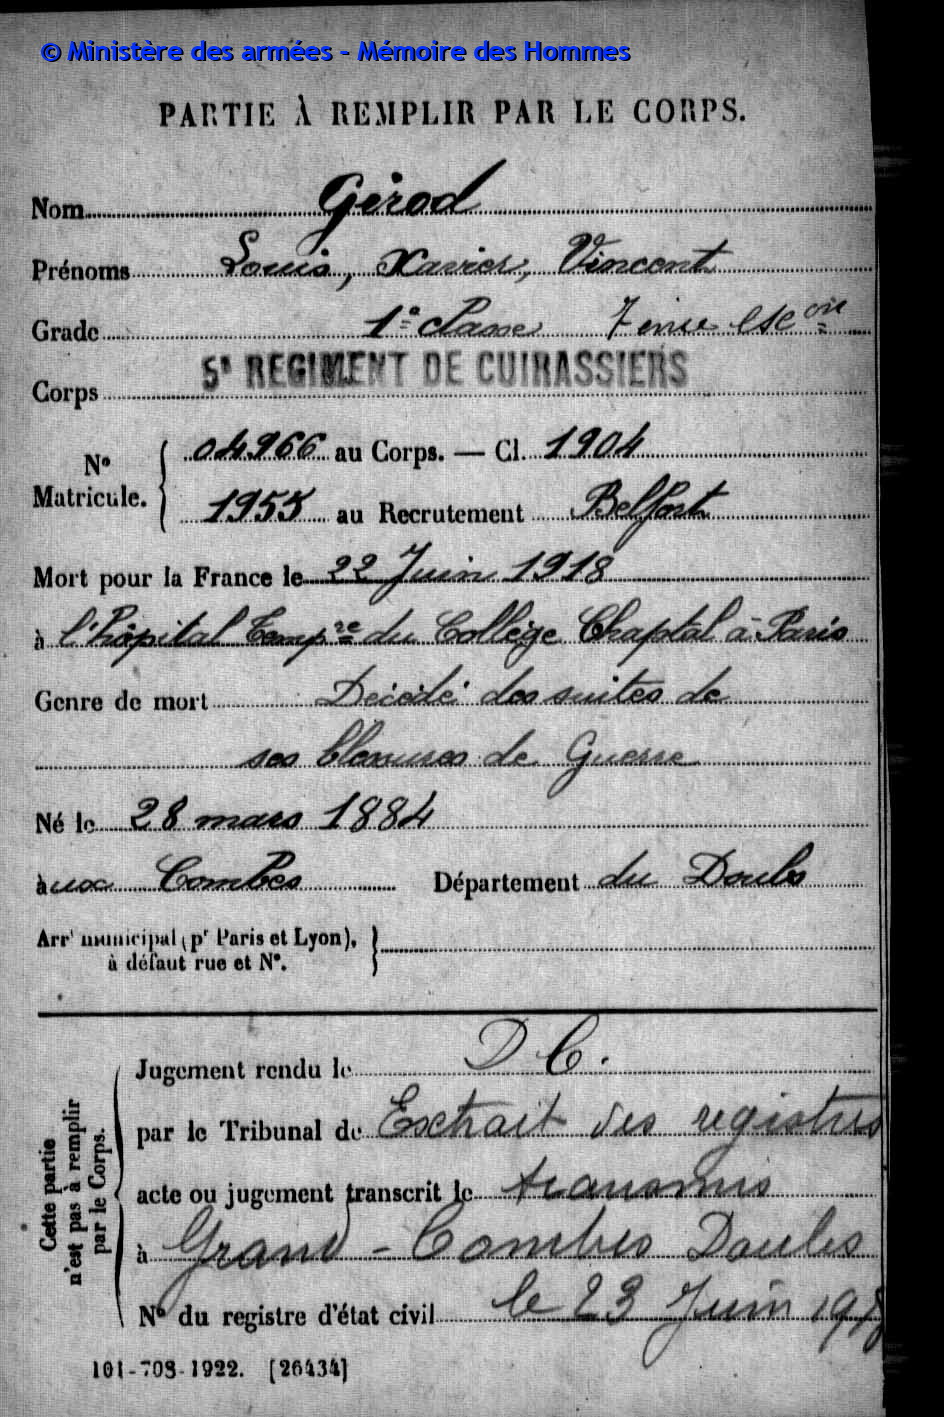 © Ministère des armées - Mémoire des Hommes
PARTIE À REMPLIR PAR LE CORPS.
Nom Girod
Prénoms Louis, Xavier, Vincent
Grade 1e classe 7eme Escon
Corps 5e REGIMENT DE CUIRASSIERS
No Matricule. { 04966 au Corps. — Cl. 1904
1955 au Recrutement Belfort
Mort pour la France le 22 Juin 1918
à l'hôpital Tempre du Collège Chaptal à Paris
Genre de mort Décédé des suites de
ses blessures de Guerre
Né le 28 mars 1884
àux Combes Département du Doubs
Arrt municipal (pr Paris et Lyon),
à défaut rue et No. }
Cette partie
n'est pas à remplir
par le Corps.
Jugement rendu le D C.
par le Tribunal de Extrait des registres
acte ou jugement transcrit le transmis
à Grand-Combes Doubs
No du registre d'état civil le 23 Juin 1918
101-708-1922. [26434]